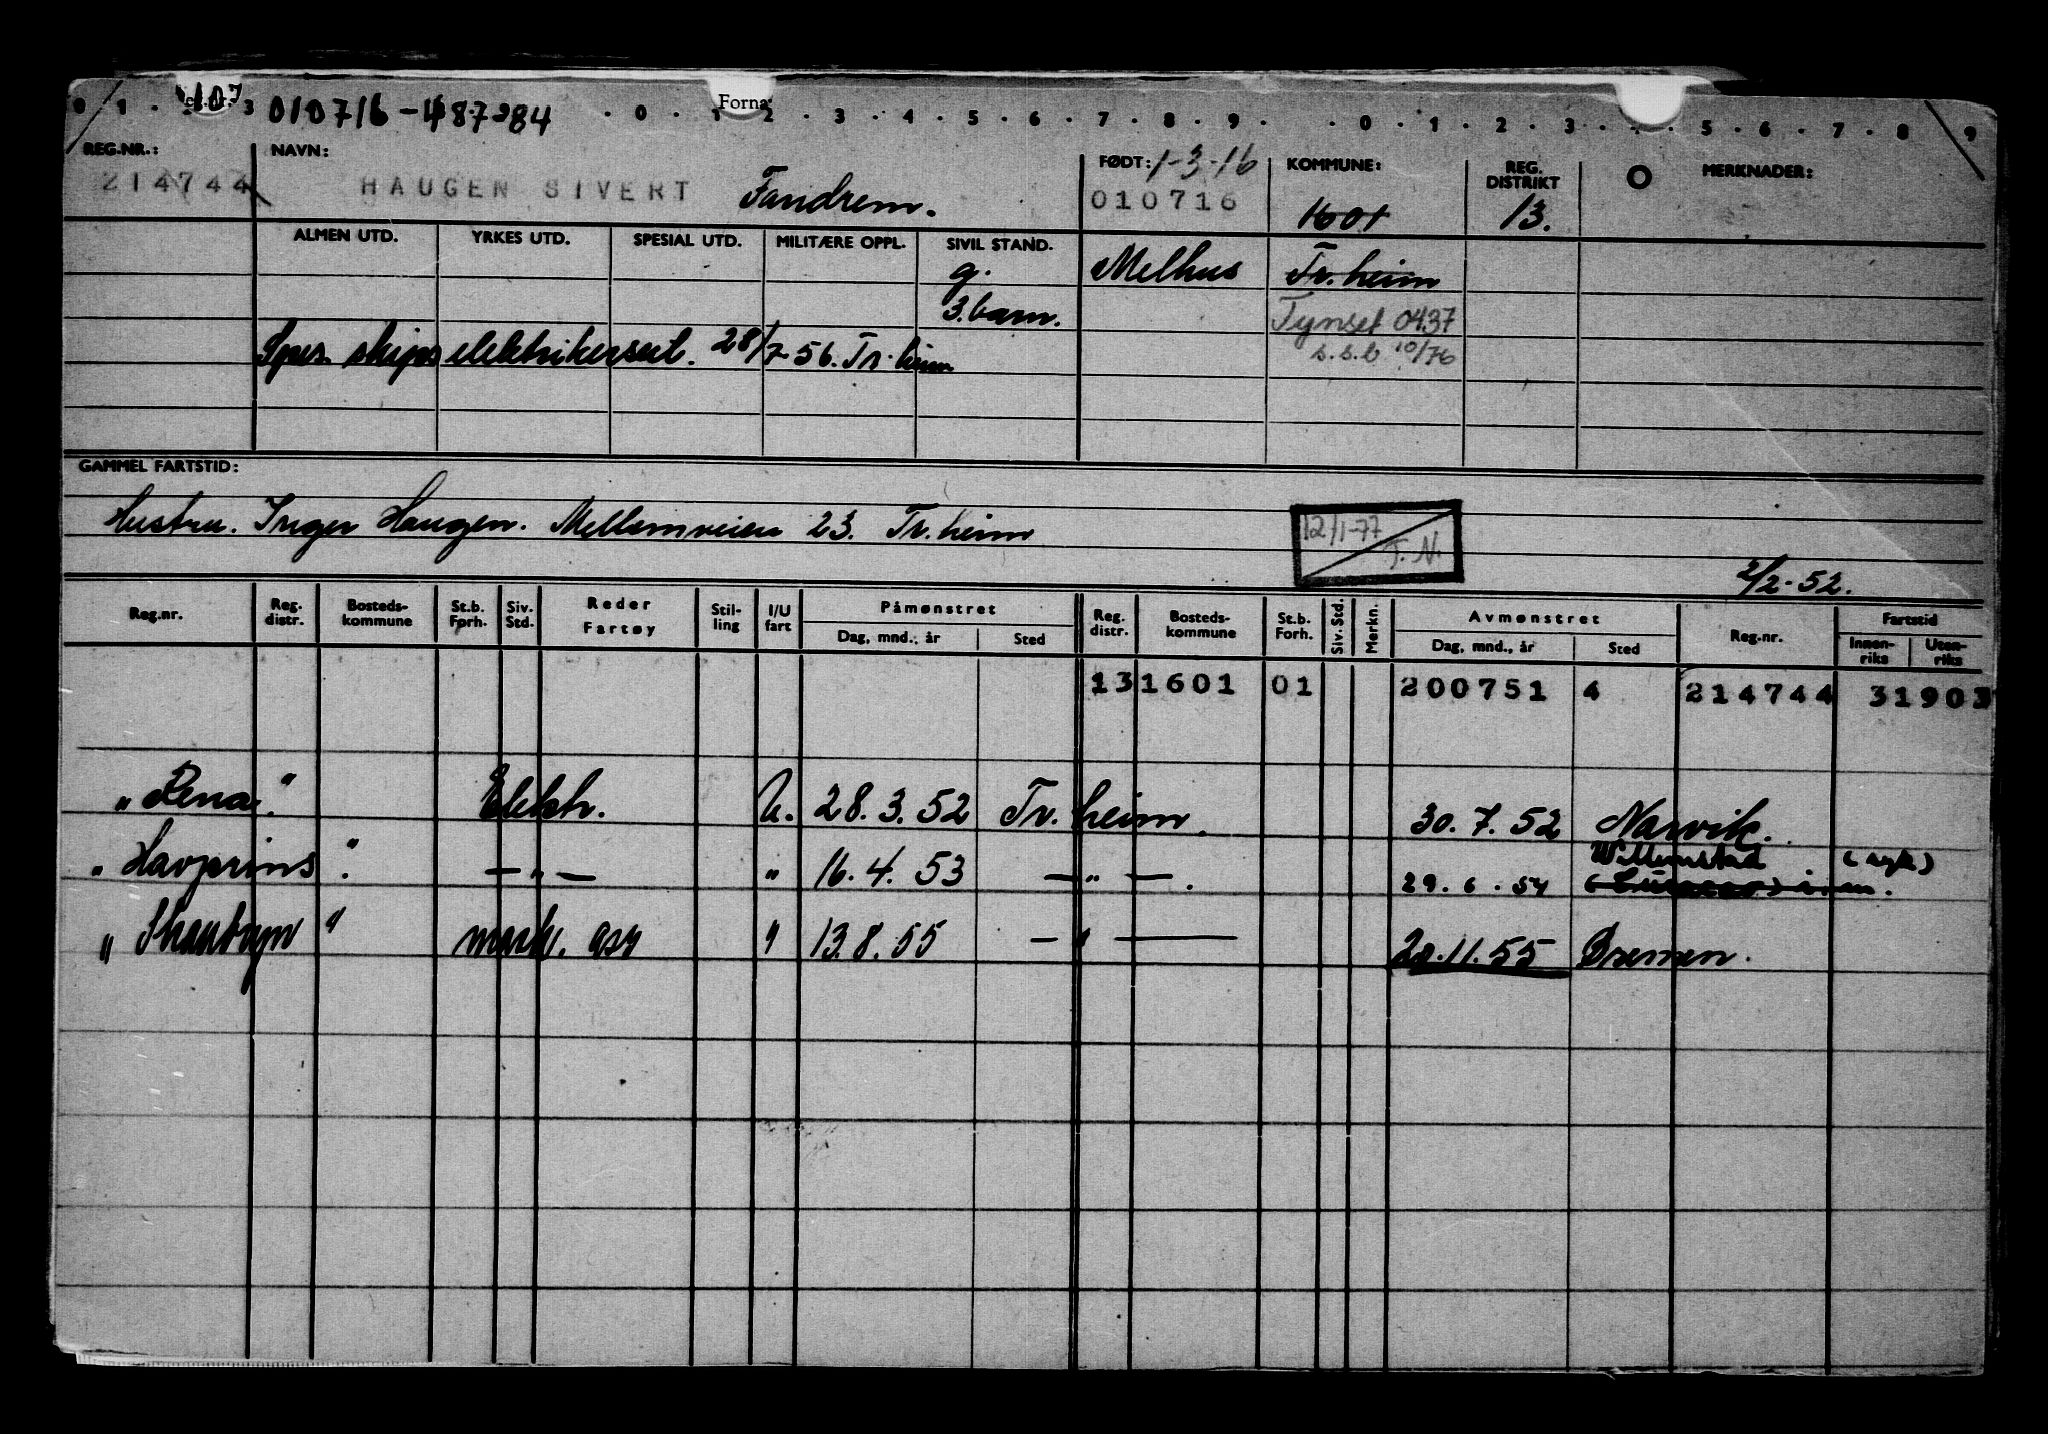 107 010716-48784 Forna
0 1 . 3 . 0 . 1 2 . 3 . 4 . 5 . 6 . 7 . 8 . 9 . . 0 . 1 . 2 . 3 . . 5 . 6 . 7 . 8 9
REG.NR.: NAVN: FØDT: 1-3-16 KOMMUNE: REG. DISTRIKT MERKNADER:
214744 HAUGEN SIVERT Fandrem. 010716 1601 13.
ALMEN UTD. YRKES UTD. SPESIAL UTD. MILITÆRE OPPL. SIVIL STAND.
g. Melhus Tr.heim
3.barn. Tynset 0437
Spes. skips elektrikersert. 28/7 56. Tr.heim s.s.b 10/76
GAMMEL FARTSTID:
Hustru. Inger Haugen. Mellomveien 23. Tr.heim
12/1-77 T.N.
2/2-52.
Reg.nr. Reg. distr. Bosteds-kommune St.b. Forh. Siv. Std. Reder Fartøy Stil-ling I/U fart Påmønstret Reg. distr. Bosteds-kommune St.b. Forh. Siv. Std. Merkn. Avmønstret Reg.nr. Fartstid
Dag, mnd., år Sted Dag, mnd., år Sted Innen-riks Uten-riks
13 1601 01 200751 4 214744 31903
"Rena." Elektr. U. 28.3.52 Tr.heim. 30.7.52 Narvik.
"Havprins". — " — " 16.4.53 — " —. 29.6.54 Willemstad (syk)
" " 13.8.55 — " — 20.11.55 Bremen.